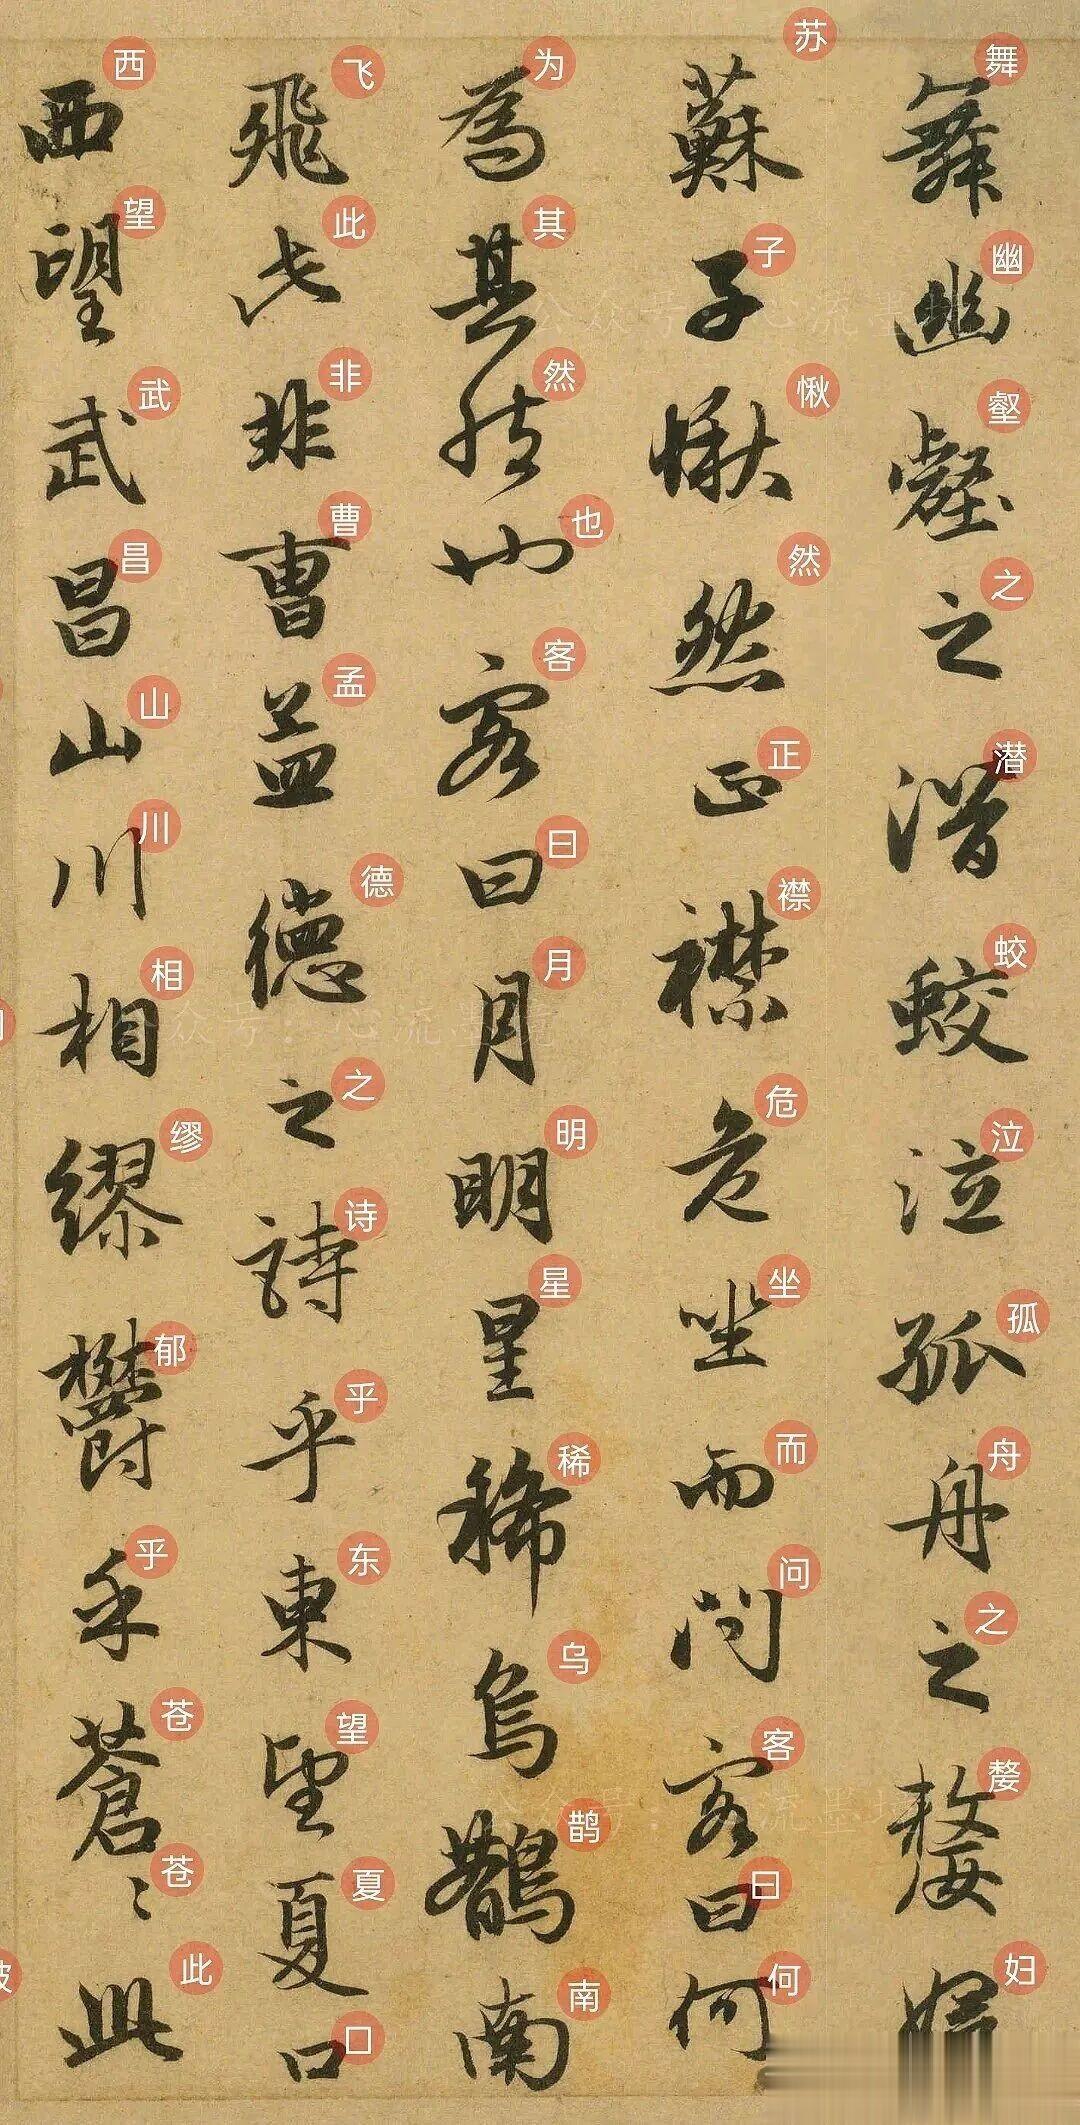 舞幽壑之潛蛟泣孤舟之嫠婦
舞幽壑之潜蛟泣孤舟之嫠妇
蘇子愀然正襟危坐而問客曰何
苏子愀然正襟危坐而问客曰何
為其然也客曰月明星稀烏鵲南
为其然也客曰月明星稀乌鹊南
飛此非曹孟德之詩乎東望夏口
飞此非曹孟德之诗乎东望夏口
西望武昌山川相繆鬱乎蒼〻此
西望武昌山川相缪郁乎苍苍此